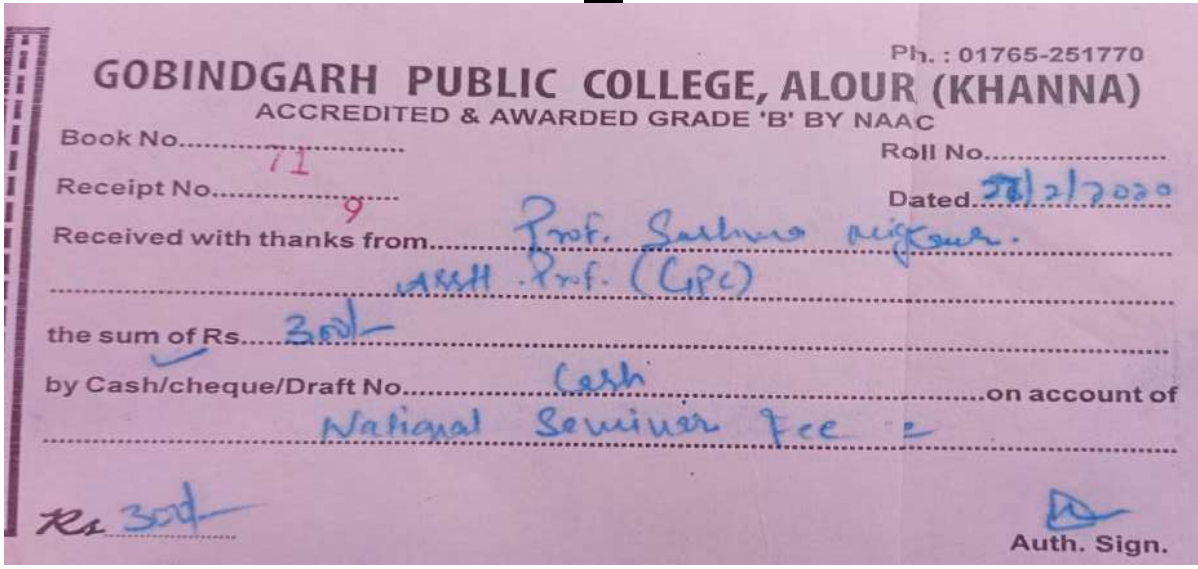 Ph. : 01765-251770
GOBINDGARH PUBLIC COLLEGE, ALOUR (KHANNA)
ACCREDITED & AWARDED GRADE 'B' BY NAAC
Book No. 71
Roll No.
Receipt No. 9
Dated /2/2020
Received with thanks from Prof.
Asstt. Prof. (GPC)
the sum of Rs. 300/-
by Cash/cheque/Draft No. Cash on account of
National Seminar Fee
Rs 300/-
Auth. Sign.